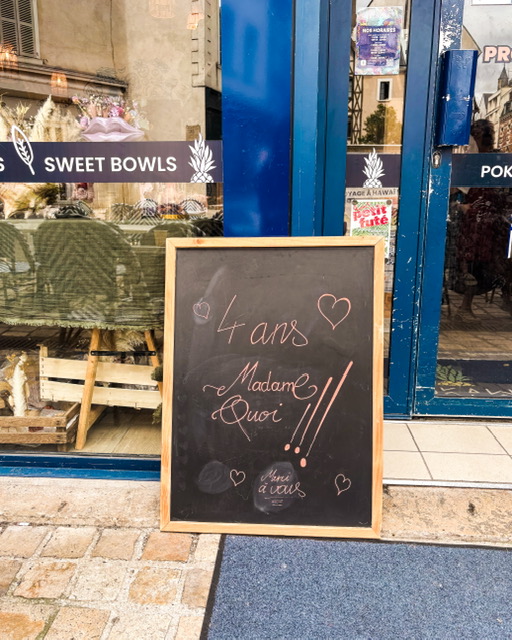 NOS HORAIRES
PRO
S SWEET BOWLS
POK
YAGE À HAWAÏ
petit
futé
4 ans
Madame
Quoi !!!
Merci
à vous